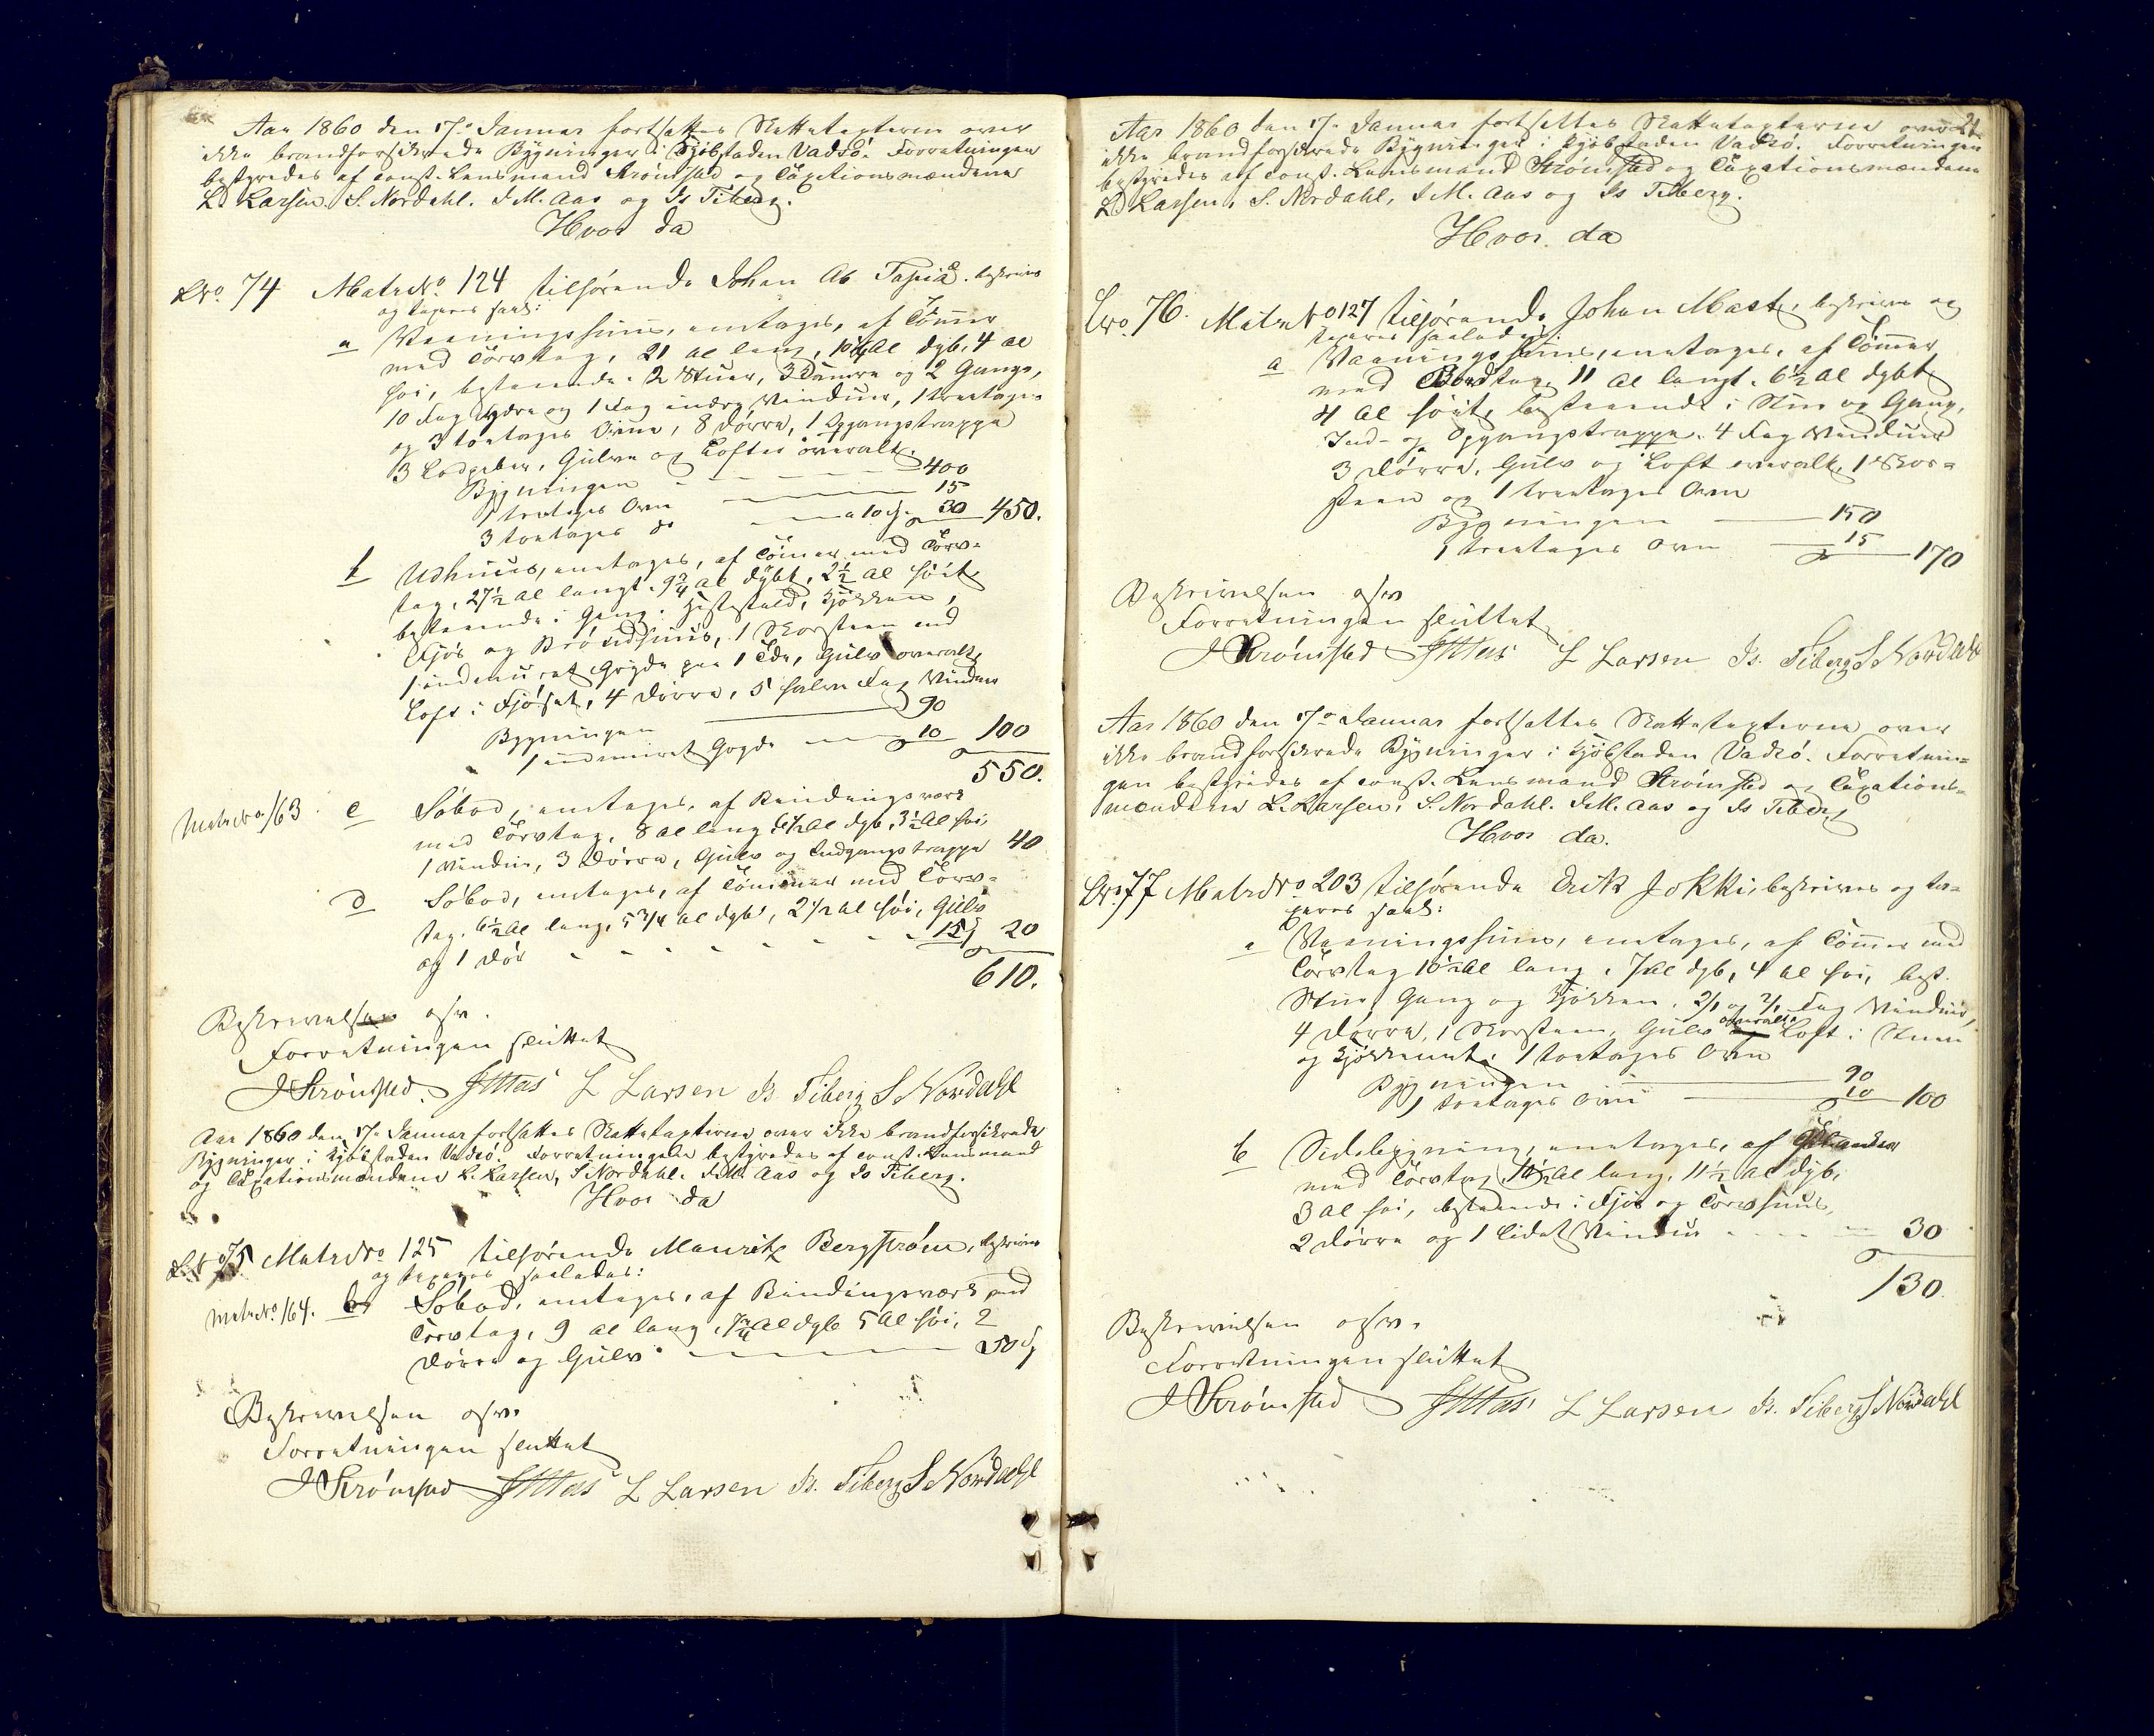 Aar 1860 den 17de Januar fortsattes Skattetaxterne over
ikke brandforsikrede Bygninger i Kjøbstaden Vadsø. Forretningen
bestyredes af const. Lensmand Strømsted og Taxationsmændene
L. Larsen. S. Nordahl. I. M. Aas og Is Tiberg.
Hvor da
LNo. 74 Matr.No. 124 tilhørende Johan Ab Tapia. beskrives
og taxeres saal:
a Vaaningshuus, eenetages, af Tømmer
med Törvtag, 21 Al lang, 10 1/4 Al dyb, 4 Al
høi, bestaaende: 2 Stuer, 3 Kamre og 2 Gange,
10 Fag større og 1 Fag mindre Vinduer, 1 treetages
og 3 toetages Ovne, 8 Dørre, 1 Opgangstrappe
3 Lodpiber, Gulve og Lofter overalt.
Bygningen 400
1 treetages Ovn 15
3 toetages do a 10 30 450.
b Udhuus, eenetages, af Tømmer med Törv-
tag, 27 1/2 Al langt. 9 3/4 Al dybt, 2 1/2 Al høit
bestaaende i Gang, Hestestald, Kjøkken,
Fjös og Brøndhuus, 1 Skorsteen med
1 indmuret Gryde paa 1 Tde, Gulv overalt,
Loft i Fjöset, 4 Dørre, 5 halve Fag Vinduer
Bygningen 90
1 indmuret Gryde 10 100
550.
Matr.No. 163. c Søbod, eenetages, af Bindingsværk
med Törvtag, 8 Al lang 6 1/2 Al dyb, 3 1/2 Al høi,
1 Vindue, 3 Dørre, Gulv og Indgangstrappe 40
d Søbod, eenetages, af Tømmer med Törv-
tag. 6 1/2 Al lang, 5 3/4 Al dyb, 2 1/2 Al høi, Gulv
og 1 Dør 15 20
610.
Beskrivelsen osv.
Forretningen sluttet
J Strømsted. I M Aas L Larsen Is. Tiberg S Nordahl
Aar 1860 den 17de Januar fortsattes Skattetaxterne over ikke brandforsikrede
Bygninger i Kjøbstaden Vadsø. Forretningen bestyredes af const. Lensmand
og Taxationsmændene L. Larsen, S Nordahl. I.M. Aas og Is Tiberg.
Hvor da
LNo 75 Matr.No. 125 tilhørende Mauritz Bergstrøm, beskrives
og taxeres saaledes:
Matr.No. 164. Søbod, eenetages, af Bindingsværk med
Törvtag, 9 Al lang, 7 3/4 Al dyb 5 Al høi, 2
Dørre og Gulv 50
Beskrivelsen osv.
Forretningen sluttet
J Strømsted I M Aas L Larsen Is. Tiberg S Nordahl
21.
Aar 1860 den 17de Januar fortsattes Skattetaxterne over
ikke brandforsikrede Bygninger i Kjøbstaden Vadsø. Forretningen
bestyredes af const. Lensmand Strømsted og Taxationsmændene
L Larsen, S. Nordahl, I. M. Aas og Is Tiberg.
Hvor. da
LNo. 76. Matr.No 127 tilhørende Johan Mast, beskrives og
taxeres saaledes:
a Vaaningshuus, eenetages, af Tømmer
med Bordtag, 11 Al langt. 6 1/2 Al dybt
4 Al høit, bestaaende i Stue og Gang,
Ind- og Opgangstrappe. 4 Fag Vinduer
3 Dørre, Gulv og Loft overalt, 1 Skor-
steen og 1 treetages Ovn
Bygningen 150
1 treetages Ovn 15 170
Beskrivelsen osv
Forretningen sluttet
J Strømsted I M Aas L Larsen Is. Tiberg S Nordahl
Aar 1860 den 17de Januar fortsattes Skattetaxterne over
ikke brandforsikrede Bygninger i Kjøbstaden Vadsø. Forretnin-
gen bestyredes af const. Lensmand Strømsted og Taxations-
mændene L. Larsen, S. Nordahl. I.M. Aas og Is Tiberg
Hvor da.
LNo. 77 Matr.No 203 tilhørende Erik Jokki, beskrives og ta-
xeres saal:
a Vaaningshuus, eenetages, af Tømmer med
Törvtag 10 1/2 Al lang, 7 Al dyb, 4 Al høi, best.
Stue, Gang og Kjøkken. 2/1 og 2/1 Fag Vinduer,
4 Dørre, 1 Skorsteen, Gulv overalt Loft i Stuen
og Kjøkkenet. 1 toetages Ovn
Bygningen 90
1 toetages Ovn 10 100
b Sidebygning, eenetages, af Planker
med Törvtag 10 1/2 Al lang, 11 1/2 Al dyb,
3 Al høi, bestaaende i Fjös og Törvhuus,
2 Dørre og 1 lidet Vindue 30
130
Beskrivelsen osv.
Forretningen sluttet
J Strømsted I M Aas L Larsen Is. Tiberg S Nordahl